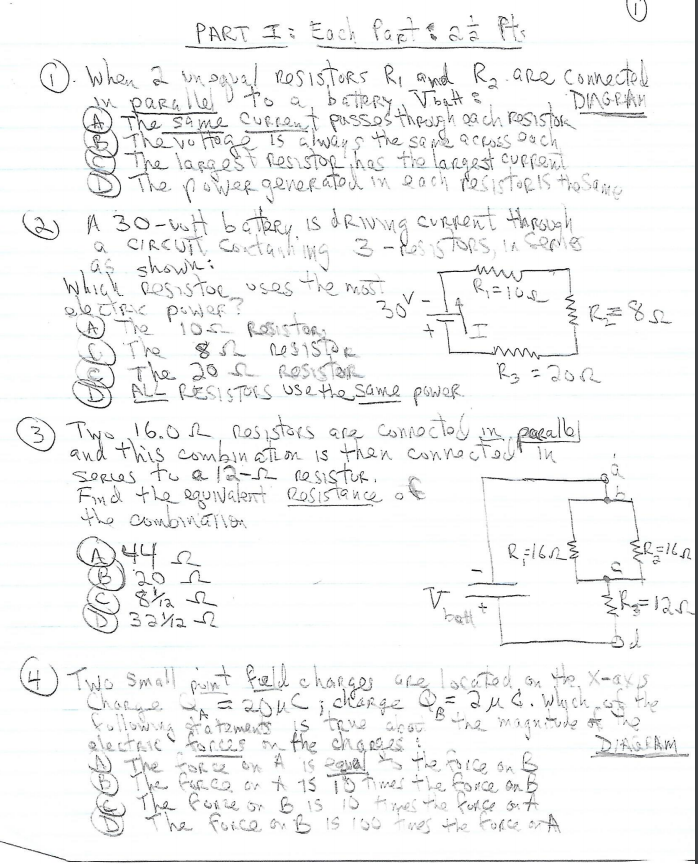 ①
PART I: Each Part: 2½ Pts
①. When 2 unequal resistors R₁ and R₂ are connected
in parallel to a battery, Vbatt:
DIAGRAM
Ⓐ The same current passes through each resistor
Ⓑ The voltage is always the same across each
Ⓒ The largest resistor has the largest current
Ⓓ The power generated in each resistor is the same
② A 30-volt battery is driving current through
a circuit containing 3-resistors, in series
as shown:
Which resistor uses the most
electric power?
Ⓐ The 10Ω Resistor
Ⓒ The 8Ω resistor
Ⓒ The 20Ω resistor
Ⓓ ALL RESISTORS use the same power.
R₁=10Ω
30V
-
+
I
R₂=8Ω
R₃=20Ω
③ Two 16.0Ω resistors are connected in parallel
and this combination is then connected in
series to a 12-Ω resistor.
Find the equivalent Resistance of
the combination
Ⓐ 44 Ω
Ⓑ 20 Ω
Ⓒ 8 1/12 Ω
Ⓓ 32 1/12 Ω
a
b
R₁=16Ω
R₂=16Ω
c
-
Vbatt
+
R₃=12Ω
d
④ Two small point charges are located on the x-axis
Charge Q_A = 20μC; charge Q_B = 2μC. Which of the
following statements is true about the magnitude of the
electric forces on the charges:
DIAGRAM
Ⓐ The force on A is equal to the force on B
Ⓑ The force on A is 10 times the force on B
Ⓒ The force on B is 10 times the force on A
Ⓓ The force on B is 100 times the force on A